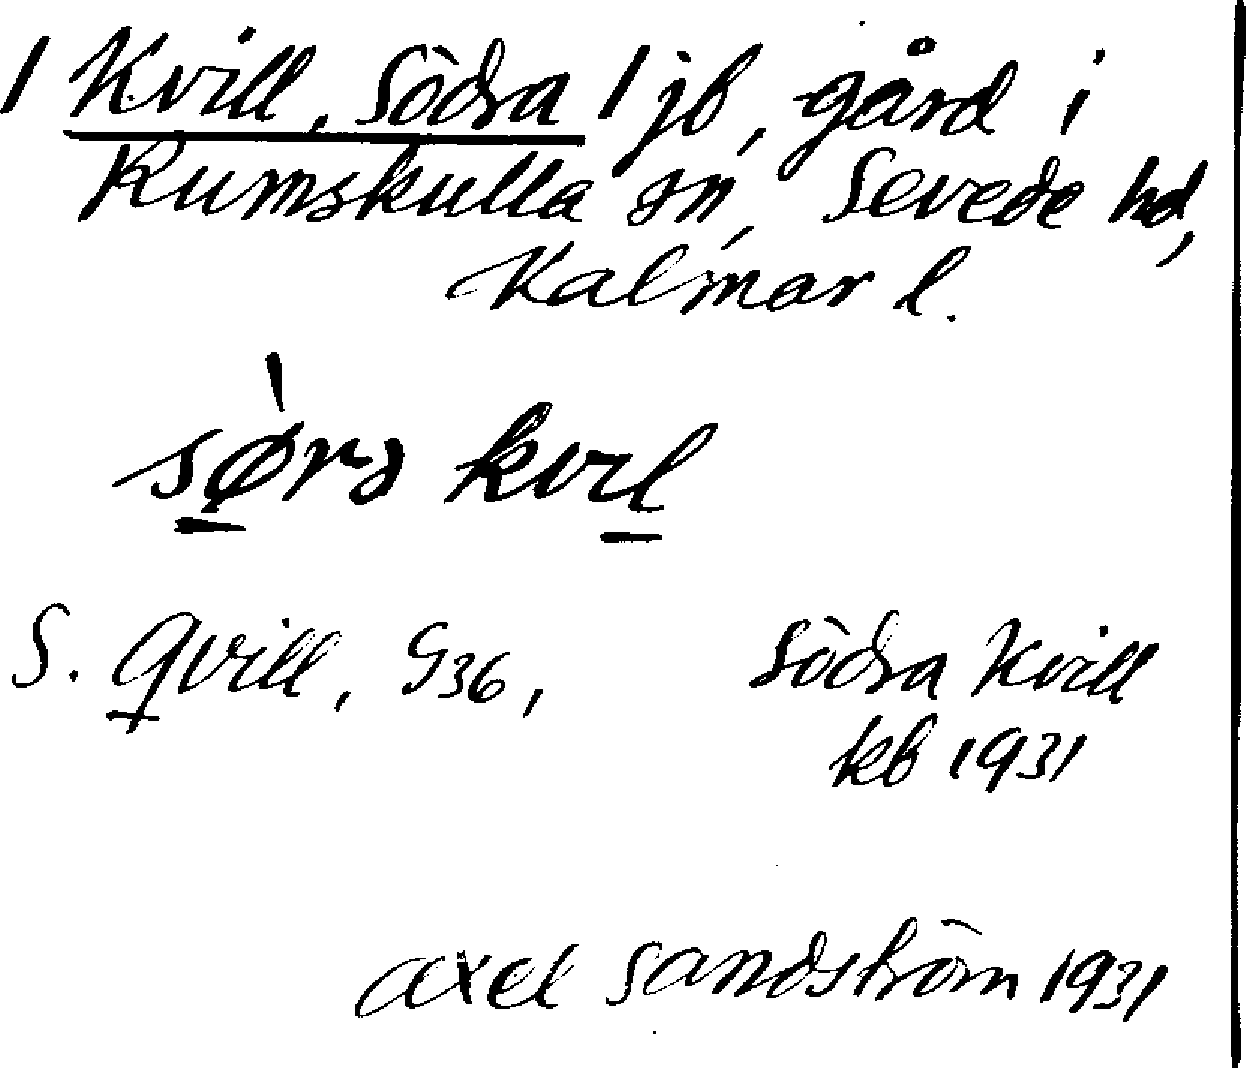 / Kvill, Södra / jb, gård i
Rumskulla sn, Sevede hd,
Kalmar l.
sø̀rə kvɪl
S. Qvill, G36, Södra Kvill
kb 1931
Axel Sandström 1931